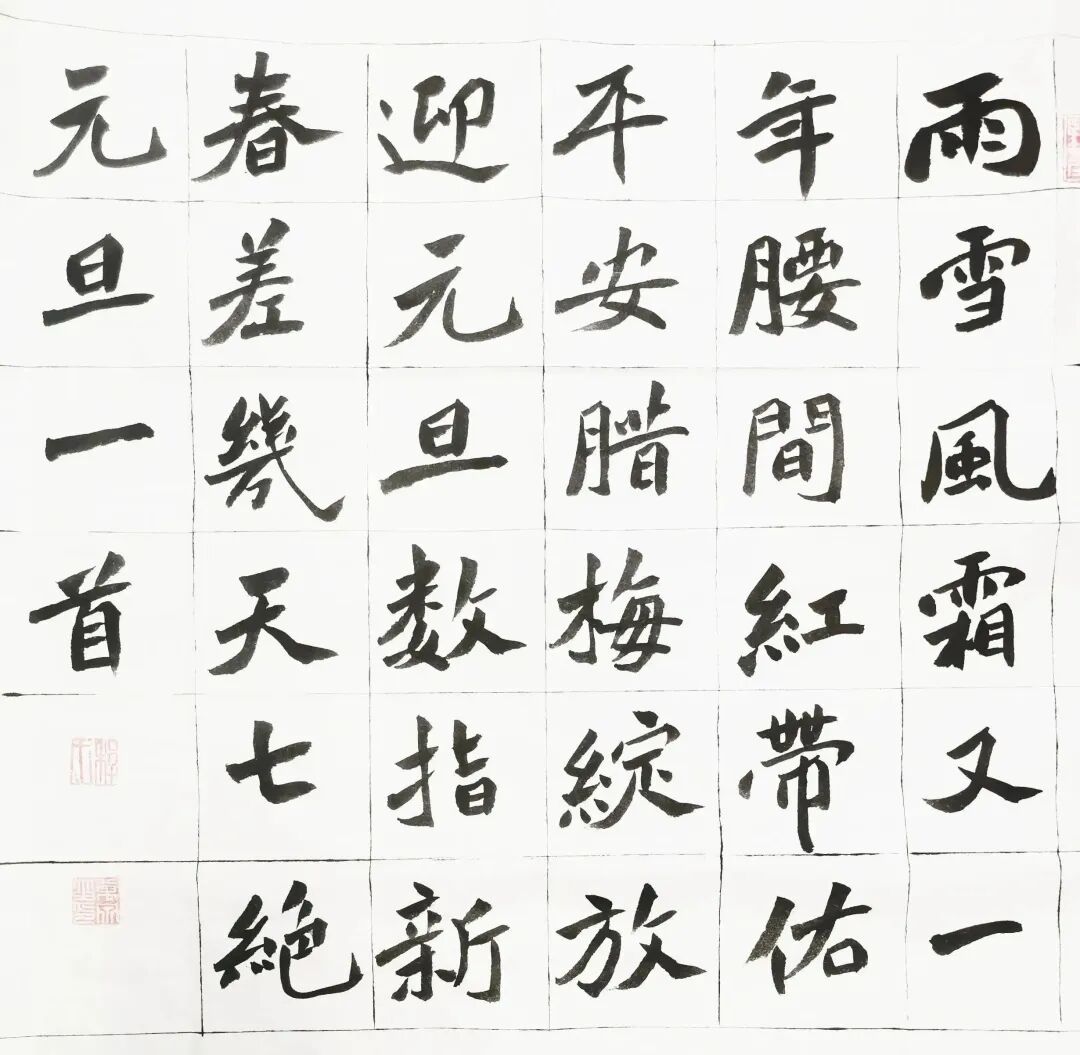 雨雪風霜又一
年腰間紅帶佑
平安腊梅綻放
迎元旦数指新
春差幾天七絕
元旦一首